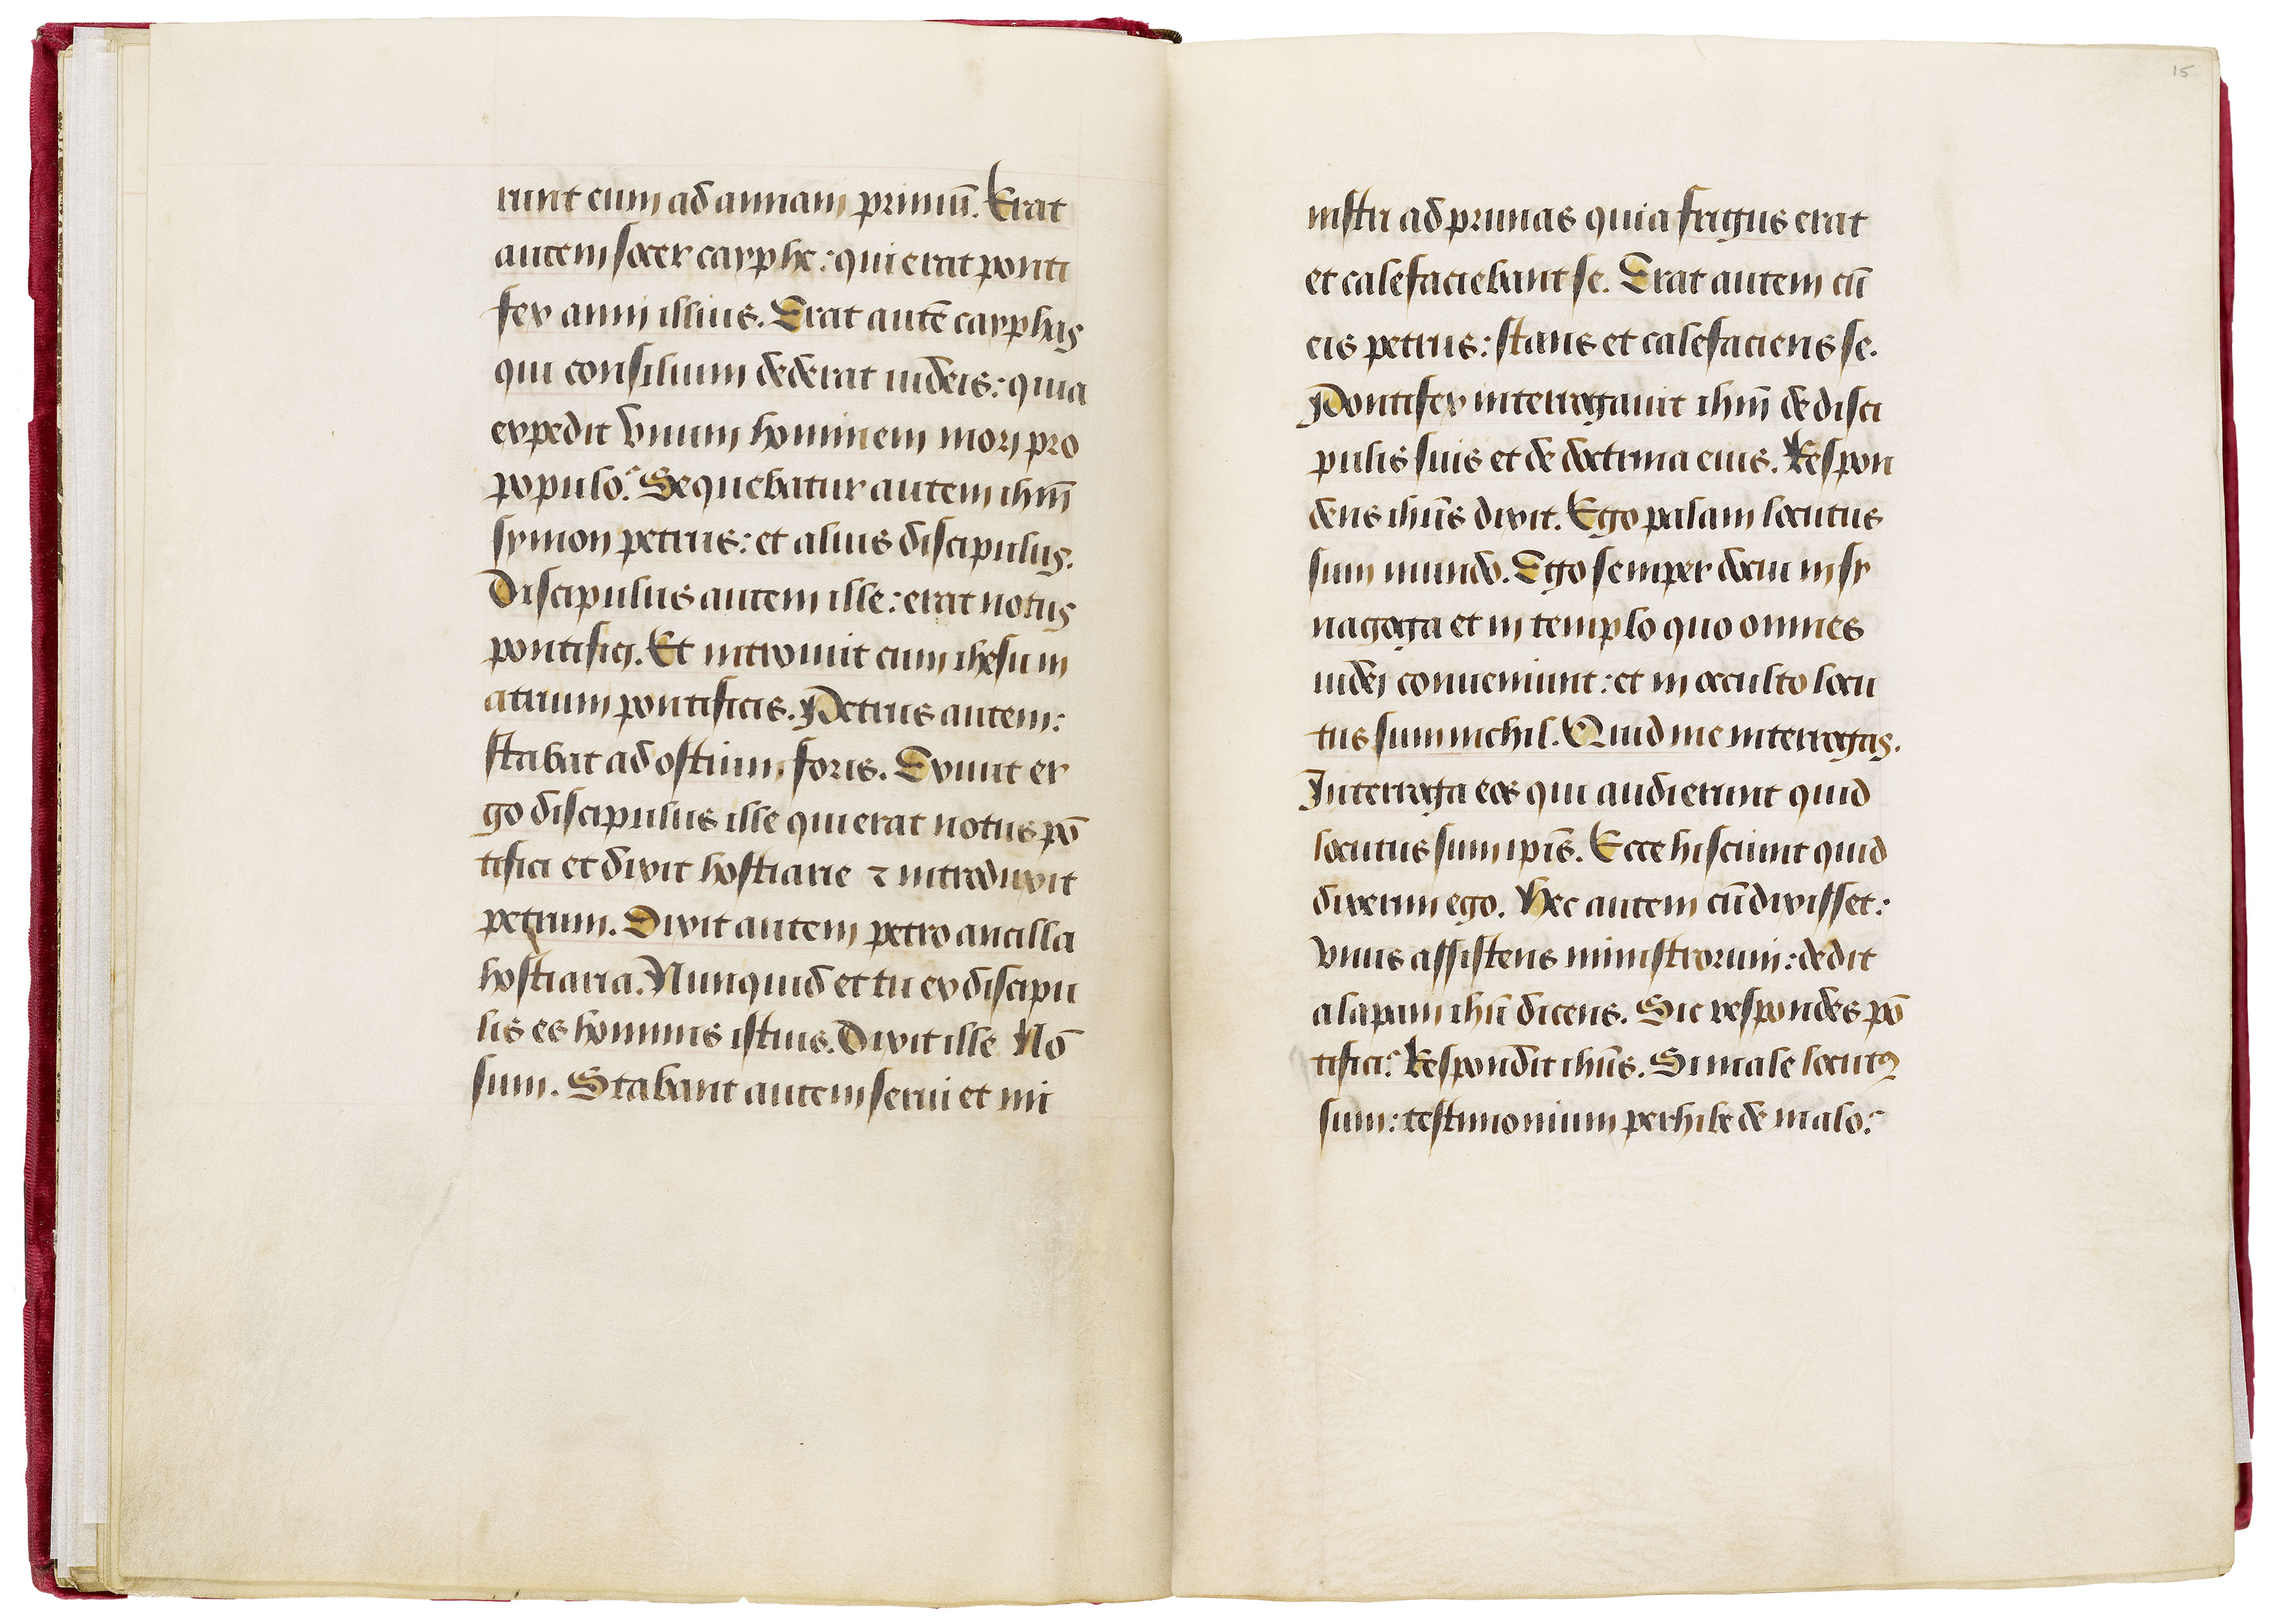 runt eum ad annam primū. Erat
autem socer cayphe: qui erat ponti
fex anni illius. Erat autē cayphas
qui consilium dederat iudeis: quia
expedit vnum hominem mori pro
populo. Sequebatur autem ihm̄
symon petrus: et alius discipulus.
Discipulus autem ille: erat notus
pontifici. Et introiuit cum ihesu in
atrium pontificis. Petrus autem:
stabat ad ostium foris. Exiuit er
go discipulus ille qui erat notus pō
tifici et dixit hostiarie ⁊ introduxit
petrum. Dixit autem petro ancilla
hostiaria. Nunquid et tu ex discipu
lis es hominis istius. Dixit ille Nō
sum. Stabant autem serui et mi
15
nistri ad prunas quia frigus erat
et calefaciebant se. Erat autem cū
eis petrus: stans et calefaciens se.
Pontifex interrogauit ihm̄ de disci
pulis suis et de doctrina eius. Respon
dens ihūs dixit. Ego palam locutus
sum mundo. Ego semper docui in sy
nagoga et in templo quo omnes
iudei conueniunt: et in occulto locu
tus sum nichil. Quid me interrogas.
Interroga eos qui audierunt quid
locutus sum ipīs. Ecce hi sciunt quid
dixerim ego. Hec autem cū dixisset:
vnus assistens ministrorum: dedit
alapam ihū dicens. Sic respondes pō
tifici? Respondit ihūs. Si male locutꝰ
sum: testimonium perhibe de malo: